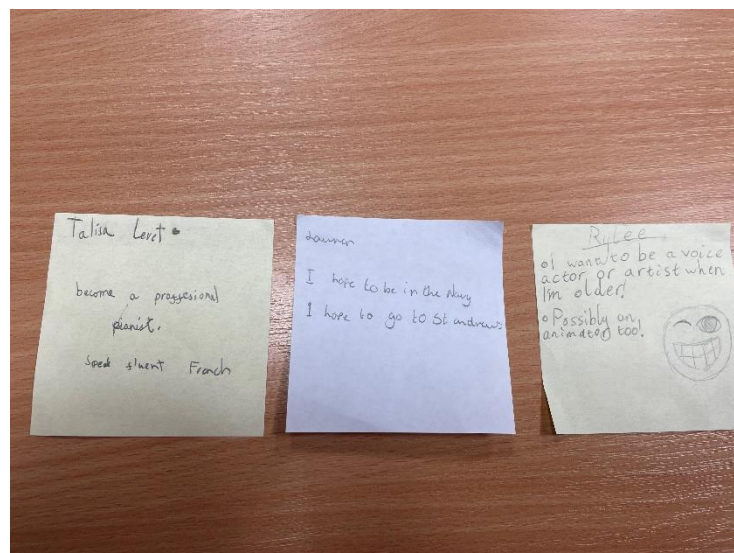 Talisa Levet
become a proffesional
pianist.
Speak fluent French
Lauren
I hope to be in the Navy
I hope to go to St andrews
Rylee
I want to be a voice
actor or artist when
I'm older!
Possibly an
animator too!